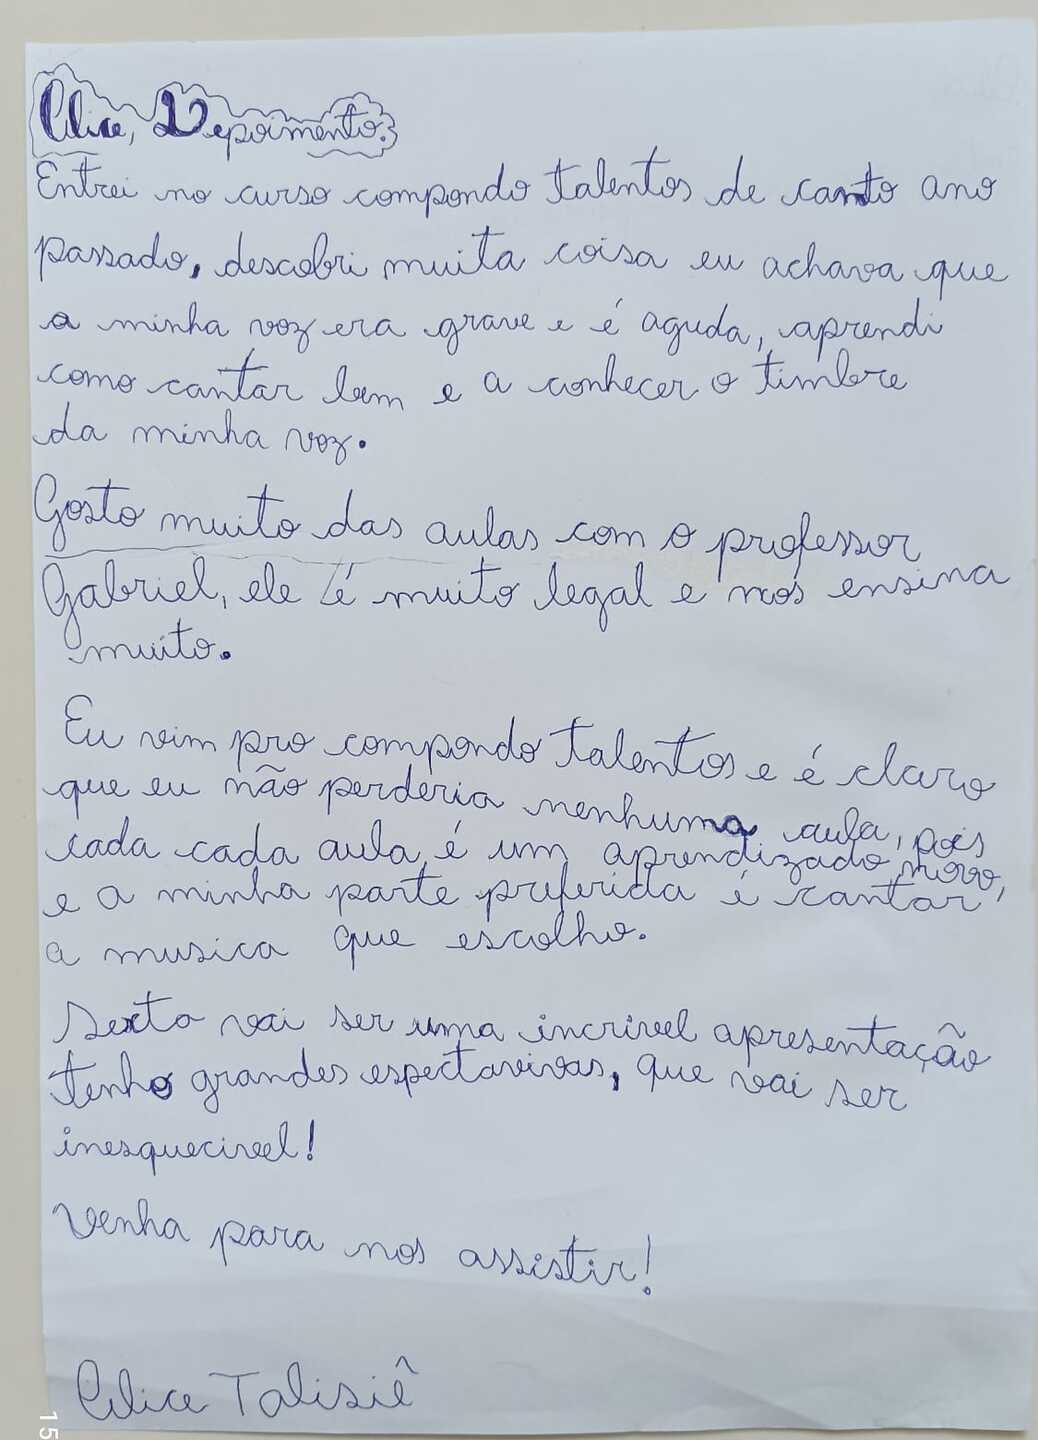 Clice, Depoimento.
Entrei no curso compondo talentos de canto ano
passado, descobri muita coisa eu achava que
a minha voz era grave e é aguda, aprendi
como cantar bem e a conhecer o timbre
da minha voz.
Gosto muito das aulas com o professor
Gabriel, ele é muito legal e nos ensina
muito.
Eu vim pro compondo talentos e é claro
que eu não perderia nenhuma aula, pois
cada cada aula é um aprendizado novo,
e a minha parte preferida é cantar
a musica que escolho.
Sexta vai ser uma incrivel apresentação
tenho grandes espectavivas, que vai ser
inesquecivel!
Venha para nos assistir!
Clice Talisiê
15